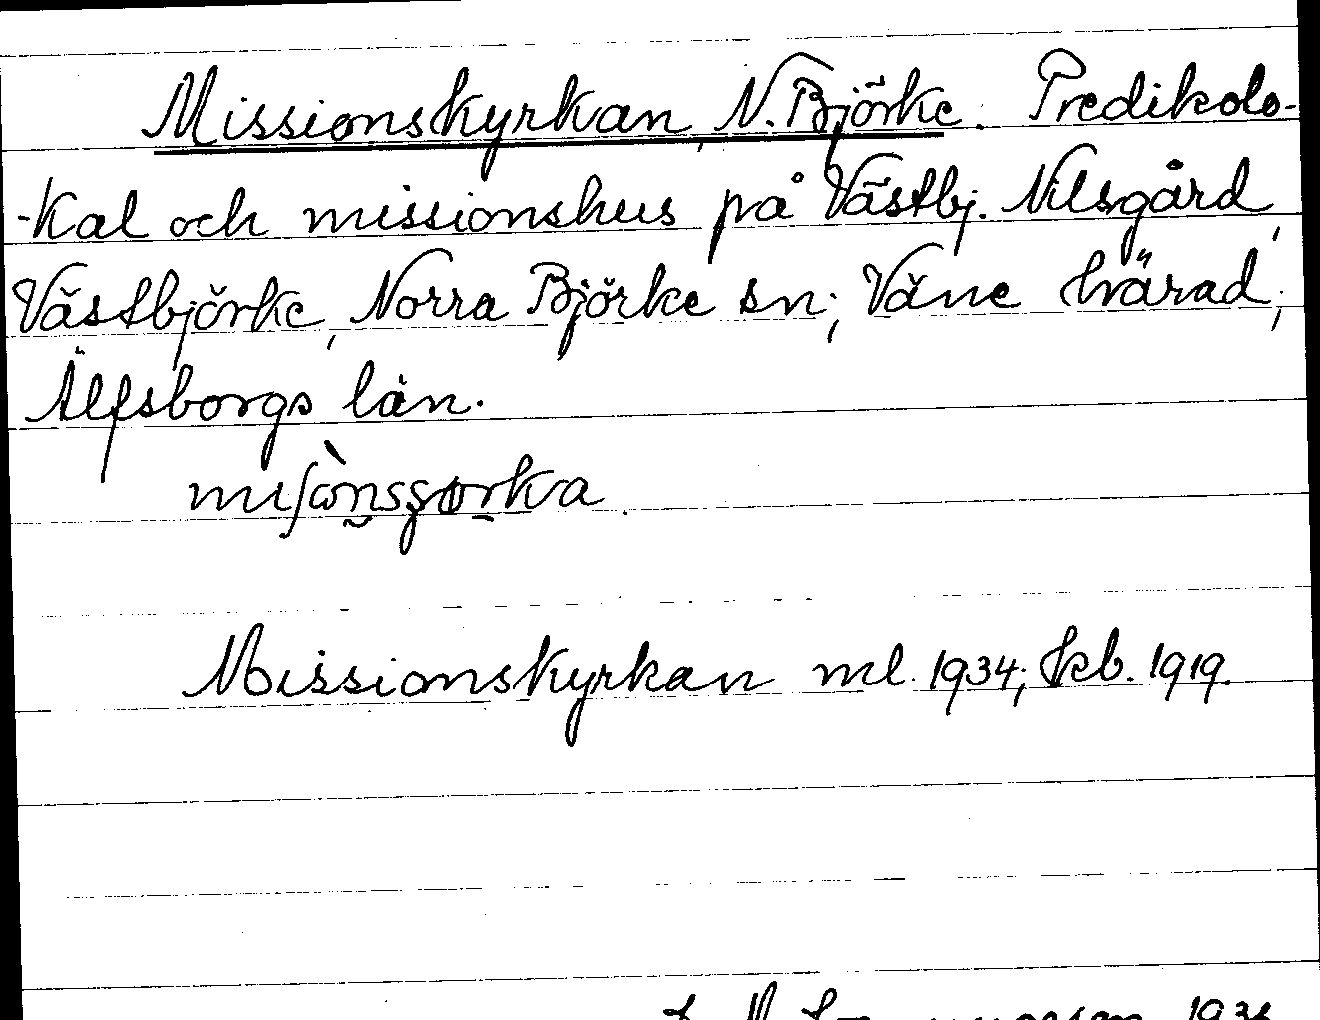 Missionskyrkan, N. Björke. Predikolo-
-kal och missionshus på Västbj. Nilsgård,
Västbjörke, Norra Björke sn; Väne härad;
Älfsborgs län.
Missionskyrkan ml. 1934; kb. 1919.